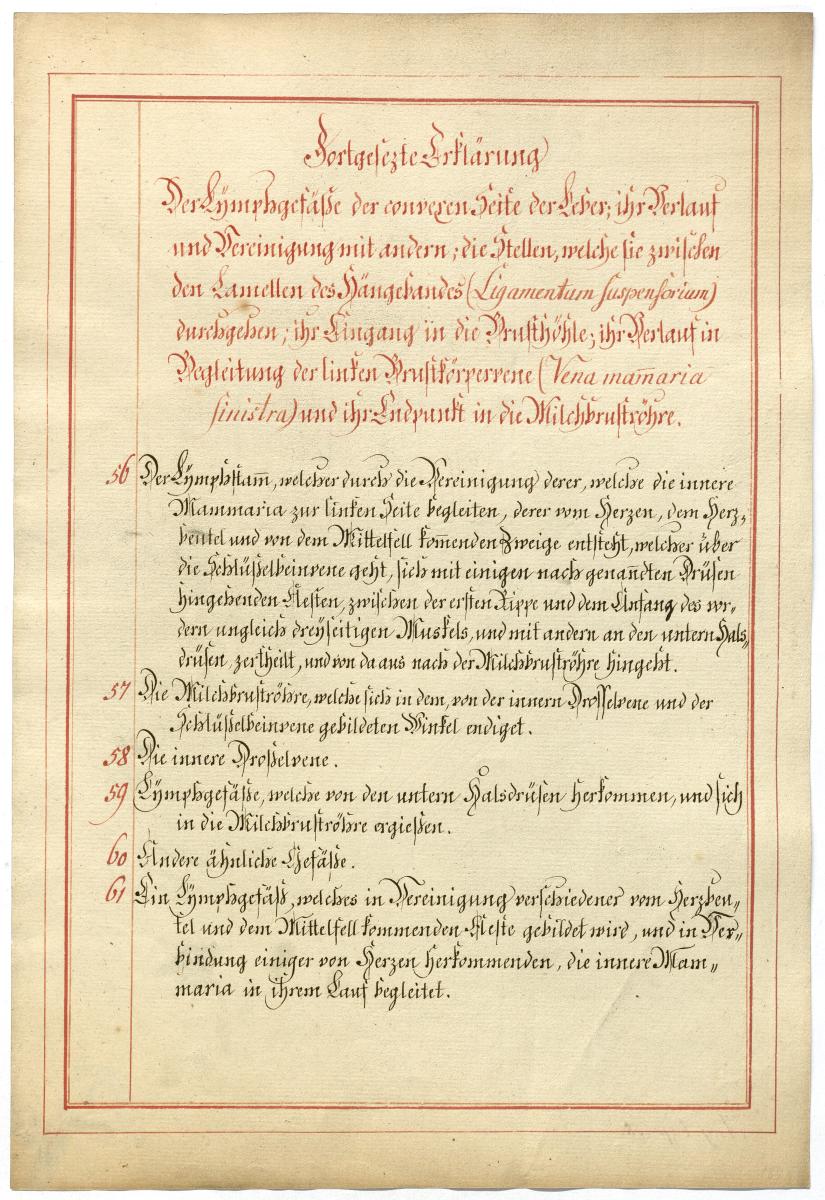 Fortgesezte Erklärung
Der Lÿmphgefäße der convexen Seite der Leber; ihr Verlauf
und Vereinigung mit andern; die Stellen, welche sie zwischen
den Lamellen des Hängebandes (Ligamentum suspensorium)
durchgehen; ihr Eingang in die Brusthöhle; ihr Verlauf in
Begleitung der linken Brustkörpervene (Vena mam̅aria
sinistra) und ihr Endpunkt in die Milchbruströhre.
56 Der Lÿmphstam̅, welcher durch die Vereinigung derer, welche die innere
Mammaria zur linken Seite begleiten, derer vom Herzen, dem Herz„
beutel und von dem Mittelfell kom̅enden Zweige entsteht, welcher über
die Schlüßelbeinvene geht, sich mit einigen nach genan̅dten Drüsen
hingehenden Aesten, zwischen der ersten Rippe und dem Anfang des vor„
dern ungleich dreÿseitigen Muskels, und mit andern an den untern Hals„
drüsen, zertheilt, und von da aus nach der Milchbruströhre hingeht.
57 Die Milchbruströhre, welche sich in dem, von der innern Drosselvene und der
Schlüßelbeinvene gebildeten Winkel endiget.
58 Die innere Droßelvene.
59 Lÿmphgefäße, welche von den untern Halsdrüsen herkommen, und sich
in die Milchbruströhre ergießen.
60 Andere ähnliche Gefäße.
61 Ein Lÿmphgefäß, welches in Vereinigung verschiedener vom Herzbeu„
tel und dem Mittelfell kommenden Aeste gebildet wird, und in Ver„
bindung einiger von Herzen herkommenden, die innere Mam„
maria in ihrem Lauf begleitet.